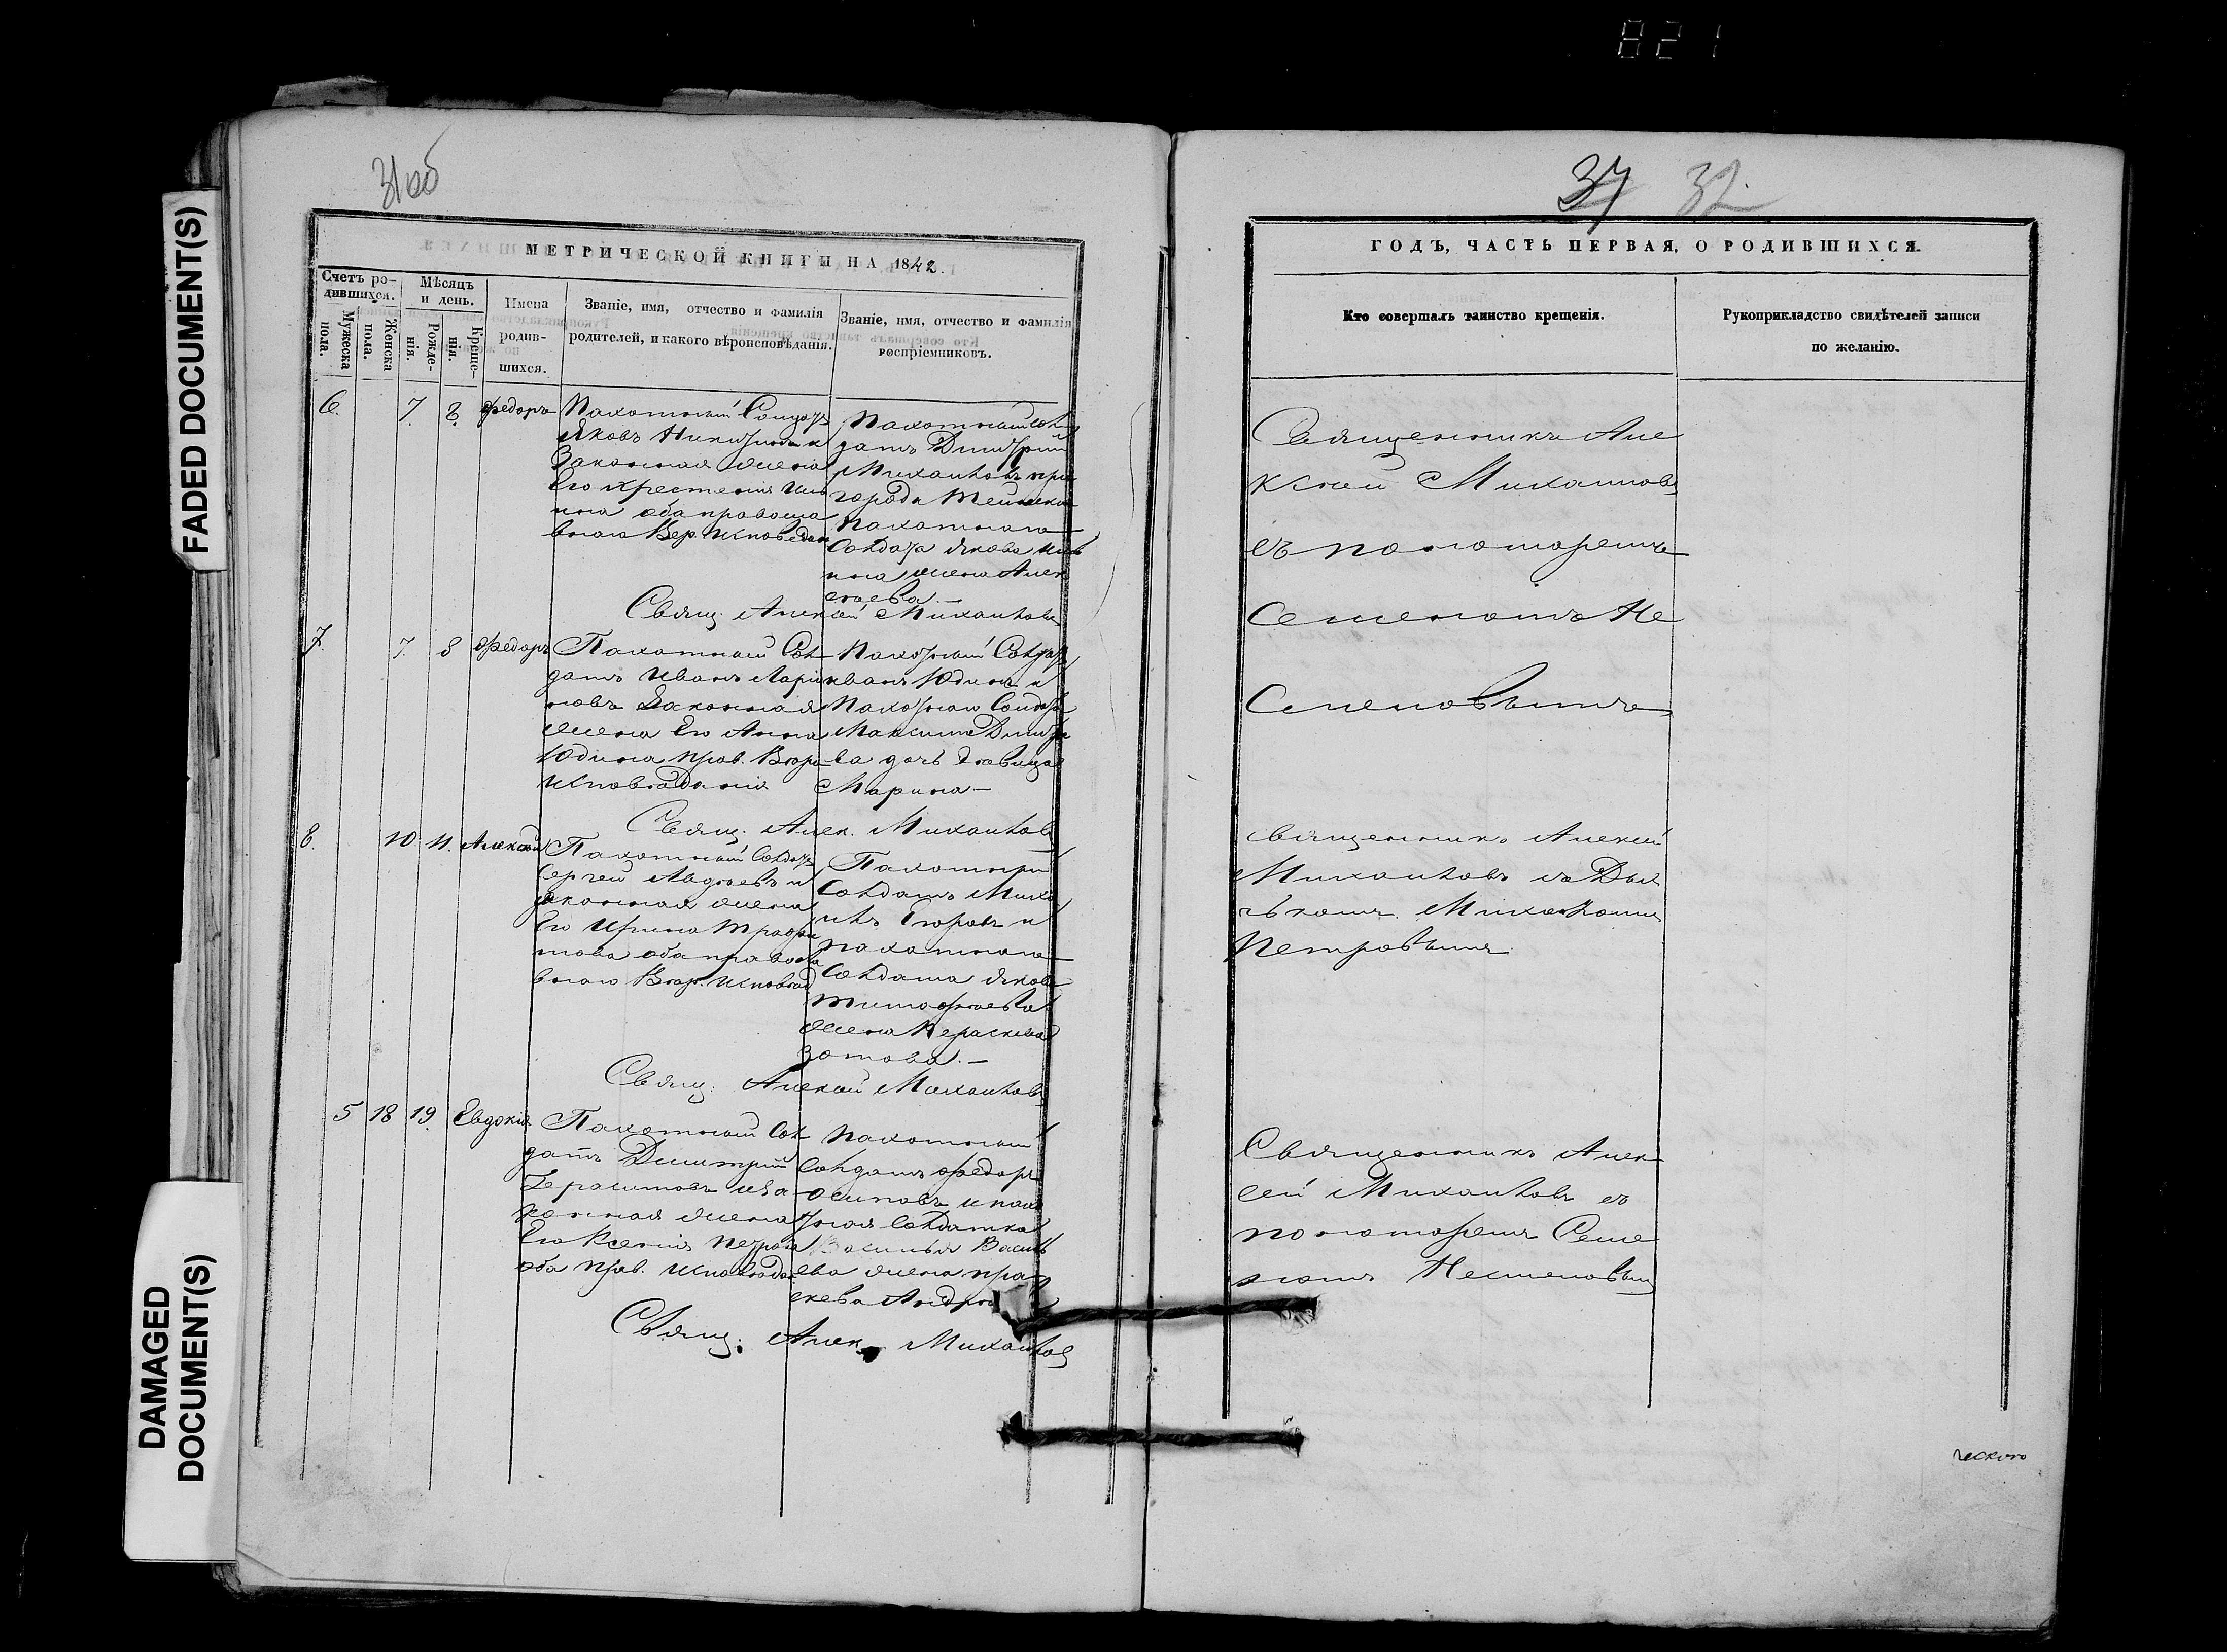 821
FADED DOCUMENT(S)
DAMAGED
DOCUMENT(S)
31 об
МЕТРИЧЕСКОЙ КНИГИ НА 1842.
Счетъ ро-
дившихся.
Мужеска
пола.
Женска
пола.
Мѣсяцъ
и день.
Рожде-
нія.
Креще-
нія.
Имена
родив-
шихся.
Званіе, имя, отчество и фамилія
родителей, и какого вѣроисповѣданія.
Званіе, имя, отчество и фамилія
воспріемниковъ.
6.
7.
8.
Федоръ
Пахотный Солдатъ
Яковъ
Законная жена
Его
оба правосла
внаго Вер. Исповедан
Пахотный Сол
датъ Димитрій
Михайловъ при
города
Пахотнаго
Солдата Якова
жена Алек
сеева.—
Свящ. Алексей Михайловъ
7.
7.
8
Федоръ
Пахотный Сол
датъ Иванъ Лари
новъ Законная
жена Его Анна
Юдина Прав. Веро
Исповеданія
Пахотный Солдатъ
Иванъ Юдинъ и
Пахотнаго Солдата
Максима Дмитрі
ва дочь девица
Марина—
Свящ. Алек. Михайловъ
8.
10
11.
Алексей
Пахотный Солдатъ
Сергей Авдеевъ и
законная жена
Его Ирина
оба правосла
внаго Вер. Исповед
Пахотный
Солдатъ Миха
илъ Егоровъ и
пахотнаго
Солдата Якова
Тимофеева
жена Пераскева
Зотова.—
Свящ. Алексей Михайловъ
5
18
19.
Евдокія
Пахотный Сол
датъ Димитрій
Герасимовъ и за
конная жена
Его Ксенія Петрова
оба Прав. Исповедан
Пахотный
Солдатъ Федоръ
Осиповъ и пахо
тная Солдатка
Василья Василь
ева жена Пра
скева
Свящ. Алек. Михайлов
37 32
ГОДЪ, ЧАСТЬ ПЕРВАЯ, О РОДИВШИХСЯ.
Кто совершалъ таинство крещенія.
Рукоприкладство свидѣтелей записи
по желанію.
Священникъ Але
ксей Михайловъ
съ пономоремъ
Семеномъ Не
Семеновымъ
священникъ Алексей
Михайловъ съ Дья
чькомъ Михайломъ
Петровымъ
Священникъ Алек
сей Михайловъ съ
пономоремъ Семе
номъ Несменовым
ческого